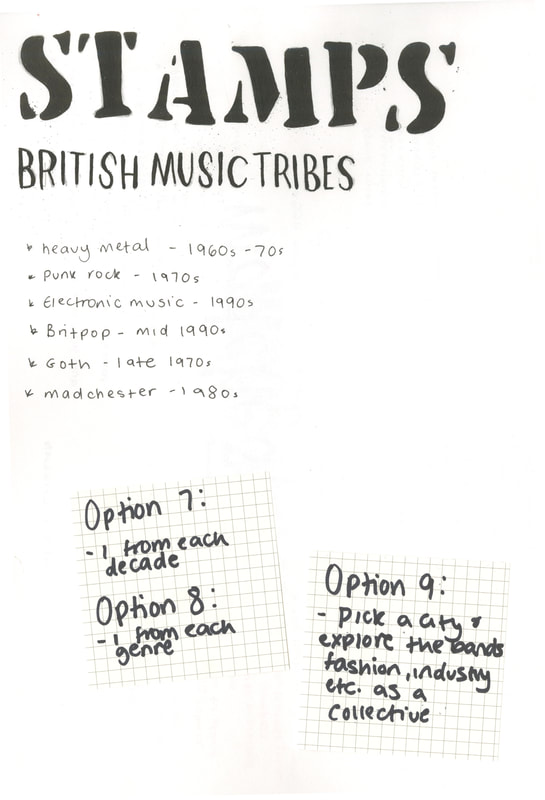 STAMPS
BRITISH MUSIC TRIBES
heavy metal - 1960s - 70s
Punk rock - 1970s
Electronic music - 1990s
Britpop - mid 1990s
Goth - late 1970s
madchester - 1980s
Option 7:
- 1 from each
decade
Option 8:
- 1 from each
genre
Option 9:
- Pick a city &
explore the bands
fashion, industry
etc. as a
collective